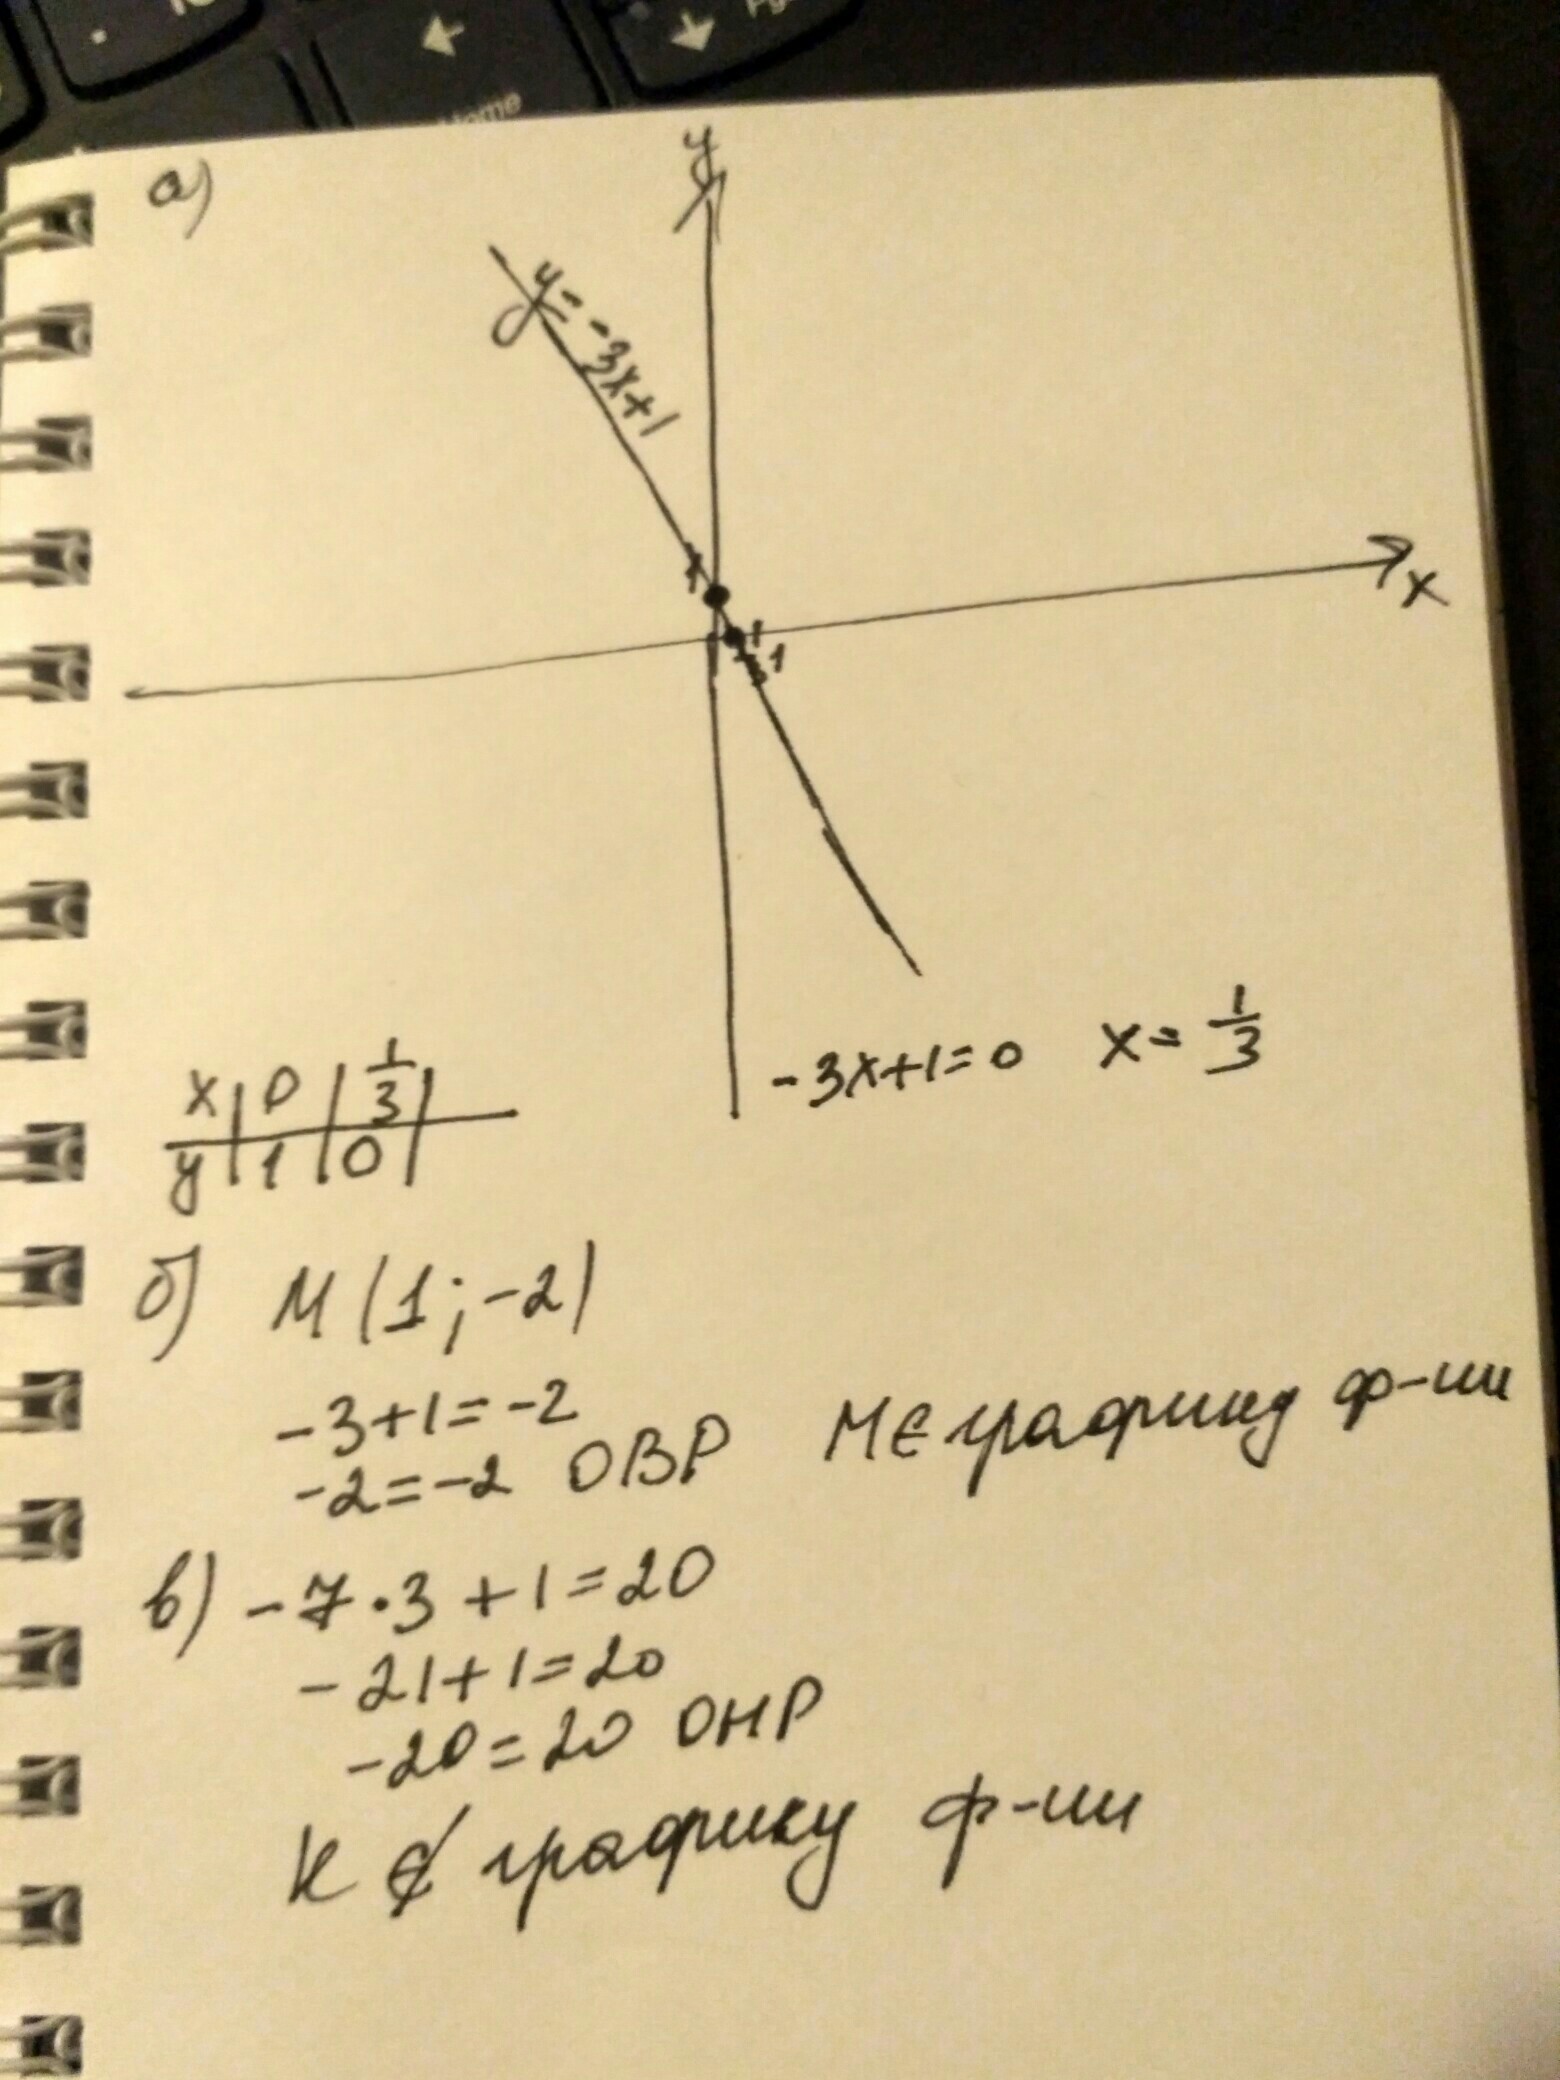 Home
а)
y
y = -3x+1
1
x
1/3
1
-3x+1=0 x = 1/3
x | 0 | 1/3 |
y | 1 | 0 |
б) M (1; -2)
-3+1=-2
-2=-2 ОВР М ∈ графику ф-ии
в) -7·3 + 1 = 20
-21+1=20
-20=20 ОНР
К ∉ графику ф-ии